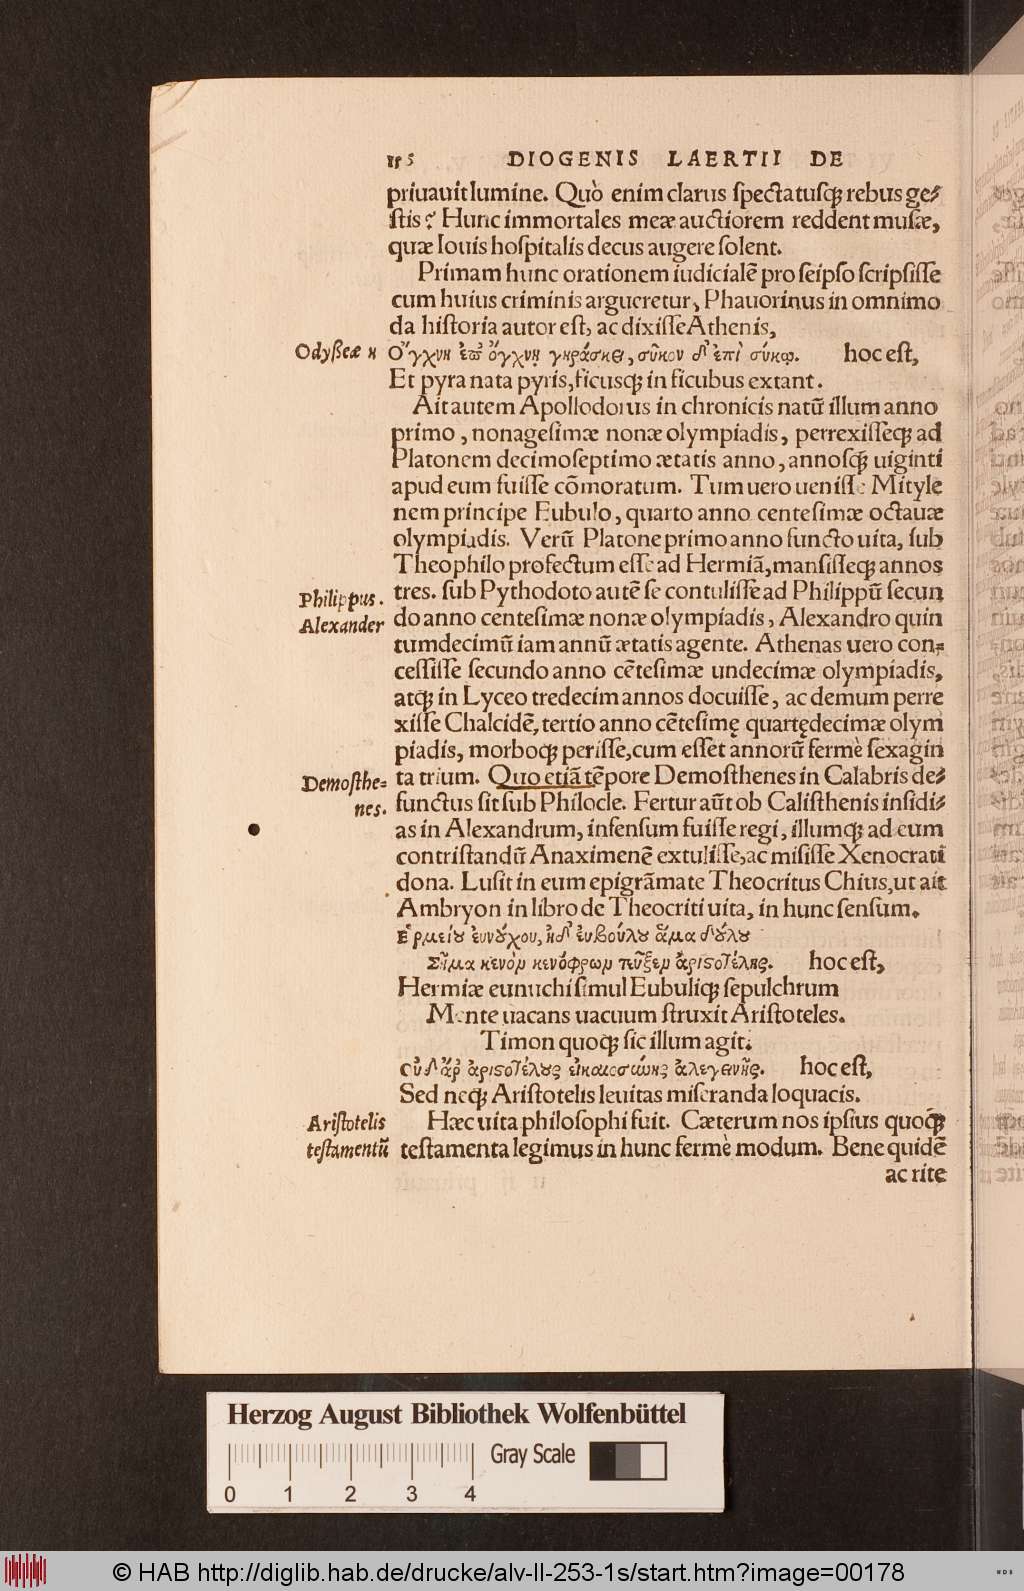 DIOGENIS LAERTII DE
priuauit lumine. Quò enim clarus spectatusq́; rebus ge-
stis? Hunc immortales meæ auctiorem reddent musæ,
quæ Iouis hospitalis decus augere solent.
Primam hunc orationem iudicialē pro seipso scripsisse
cum huius criminis argueretur, Phauorinus in omnimo
da historia autor est, ac dixisse Athenis,
Odysseæ η
Ὄγχνη ἐπ' ὄγχνῃ γηράσκει, σῦκον δ' ἐπὶ σύκῳ. hoc est,
Et pyra nata pyris, ficusq́; in ficubus extant.
Ait autem Apollodorus in chronicis natū illum anno
primo, nonagesimæ nonæ olympiadis, perrexisseq́; ad
Platonem decimoseptimo ætatis anno, annosq́; uiginti
apud eum fuisse cōmoratum. Tum uero uenisse Mityle
nem principe Eubulo, quarto anno centesimæ octauæ
olympiadis. Verū Platone primo anno functo uita, sub
Theophilo profectum esse ad Hermiā, mansisseq́; annos
Philippus.
tres. sub Pythodoto autē se contulisse ad Philippū secun
Alexander
do anno centesimæ nonæ olympiadis, Alexandro quin
tumdecimū iam annū ætatis agente. Athenas uero con-
cessisse secundo anno cētesimæ undecimæ olympiadis,
atq́; in Lyceo tredecim annos docuisse, ac demum perre
xisse Chalcidē, tertio anno cētesimę quartędecimæ olym
piadis, morboq́; perisse, cum esset annorū fermè sexagin
Demosthe-
ta trium. Quo etiā tēpore Demosthenes in Calabris de-
nes.
functus sit sub Philocle. Fertur aūt ob Calisthenis insidi-
as in Alexandrum, infensum fuisse regi, illumq́; ad eum
contristandū Anaximenē extulisse, ac misisse Xenocrati
dona. Lusit in eum epigrāmate Theocritus Chius, ut ait
Ambryon in libro de Theocriti uita, in hunc sensum.
Ἑρμείου εὐνούχου, ἠδ' ἐυβούλου ἅμα δούλου
Σῆμα κενὸν κενόφρων τεῦξεν ἀριστοτέλης. hoc est,
Hermiæ eunuchi simul Eubuliq́; sepulchrum
Mente uacans uacuum struxit Aristoteles.
Timon quoq́; sic illum agit:
οὐδ' ἄρ' ἀριστοτέλους εἰκαιοσύνης ἀλεγεινῆς. hoc est,
Sed neq́; Aristotelis leuitas miseranda loquacis.
Aristotelis
Hæc uita philosophi fuit. Cæterum nos ipsius quoq́;
testamentū
testamenta legimus in hunc fermè modum. Bene quidē
ac rite
Herzog August Bibliothek Wolfenbüttel
Gray Scale
0 1 2 3 4
© HAB http://diglib.hab.de/drucke/alv-ll-253-1s/start.htm?image=00178